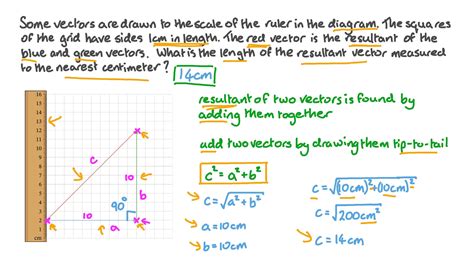 Some vectors are drawn to the scale of the ruler in the diagram. The squares
of the grid have sides 1cm in length. The red vector is the resultant of the
blue and green vectors. What is the length of the resultant vector measured
to the nearest centimeter? 14cm
resultant of two vectors is found by
adding them together
add two vectors by drawing them tip-to-tail
c² = a² + b²
c = √a² + b²
a = 10cm
b = 10cm
c = √(10cm)² + (10cm)²
c = √200cm²
c = 14cm
16
15
14
13
12
11
10
9
8
7
6
5
4
3
2
1
cm
c
10
b
90°
10
a